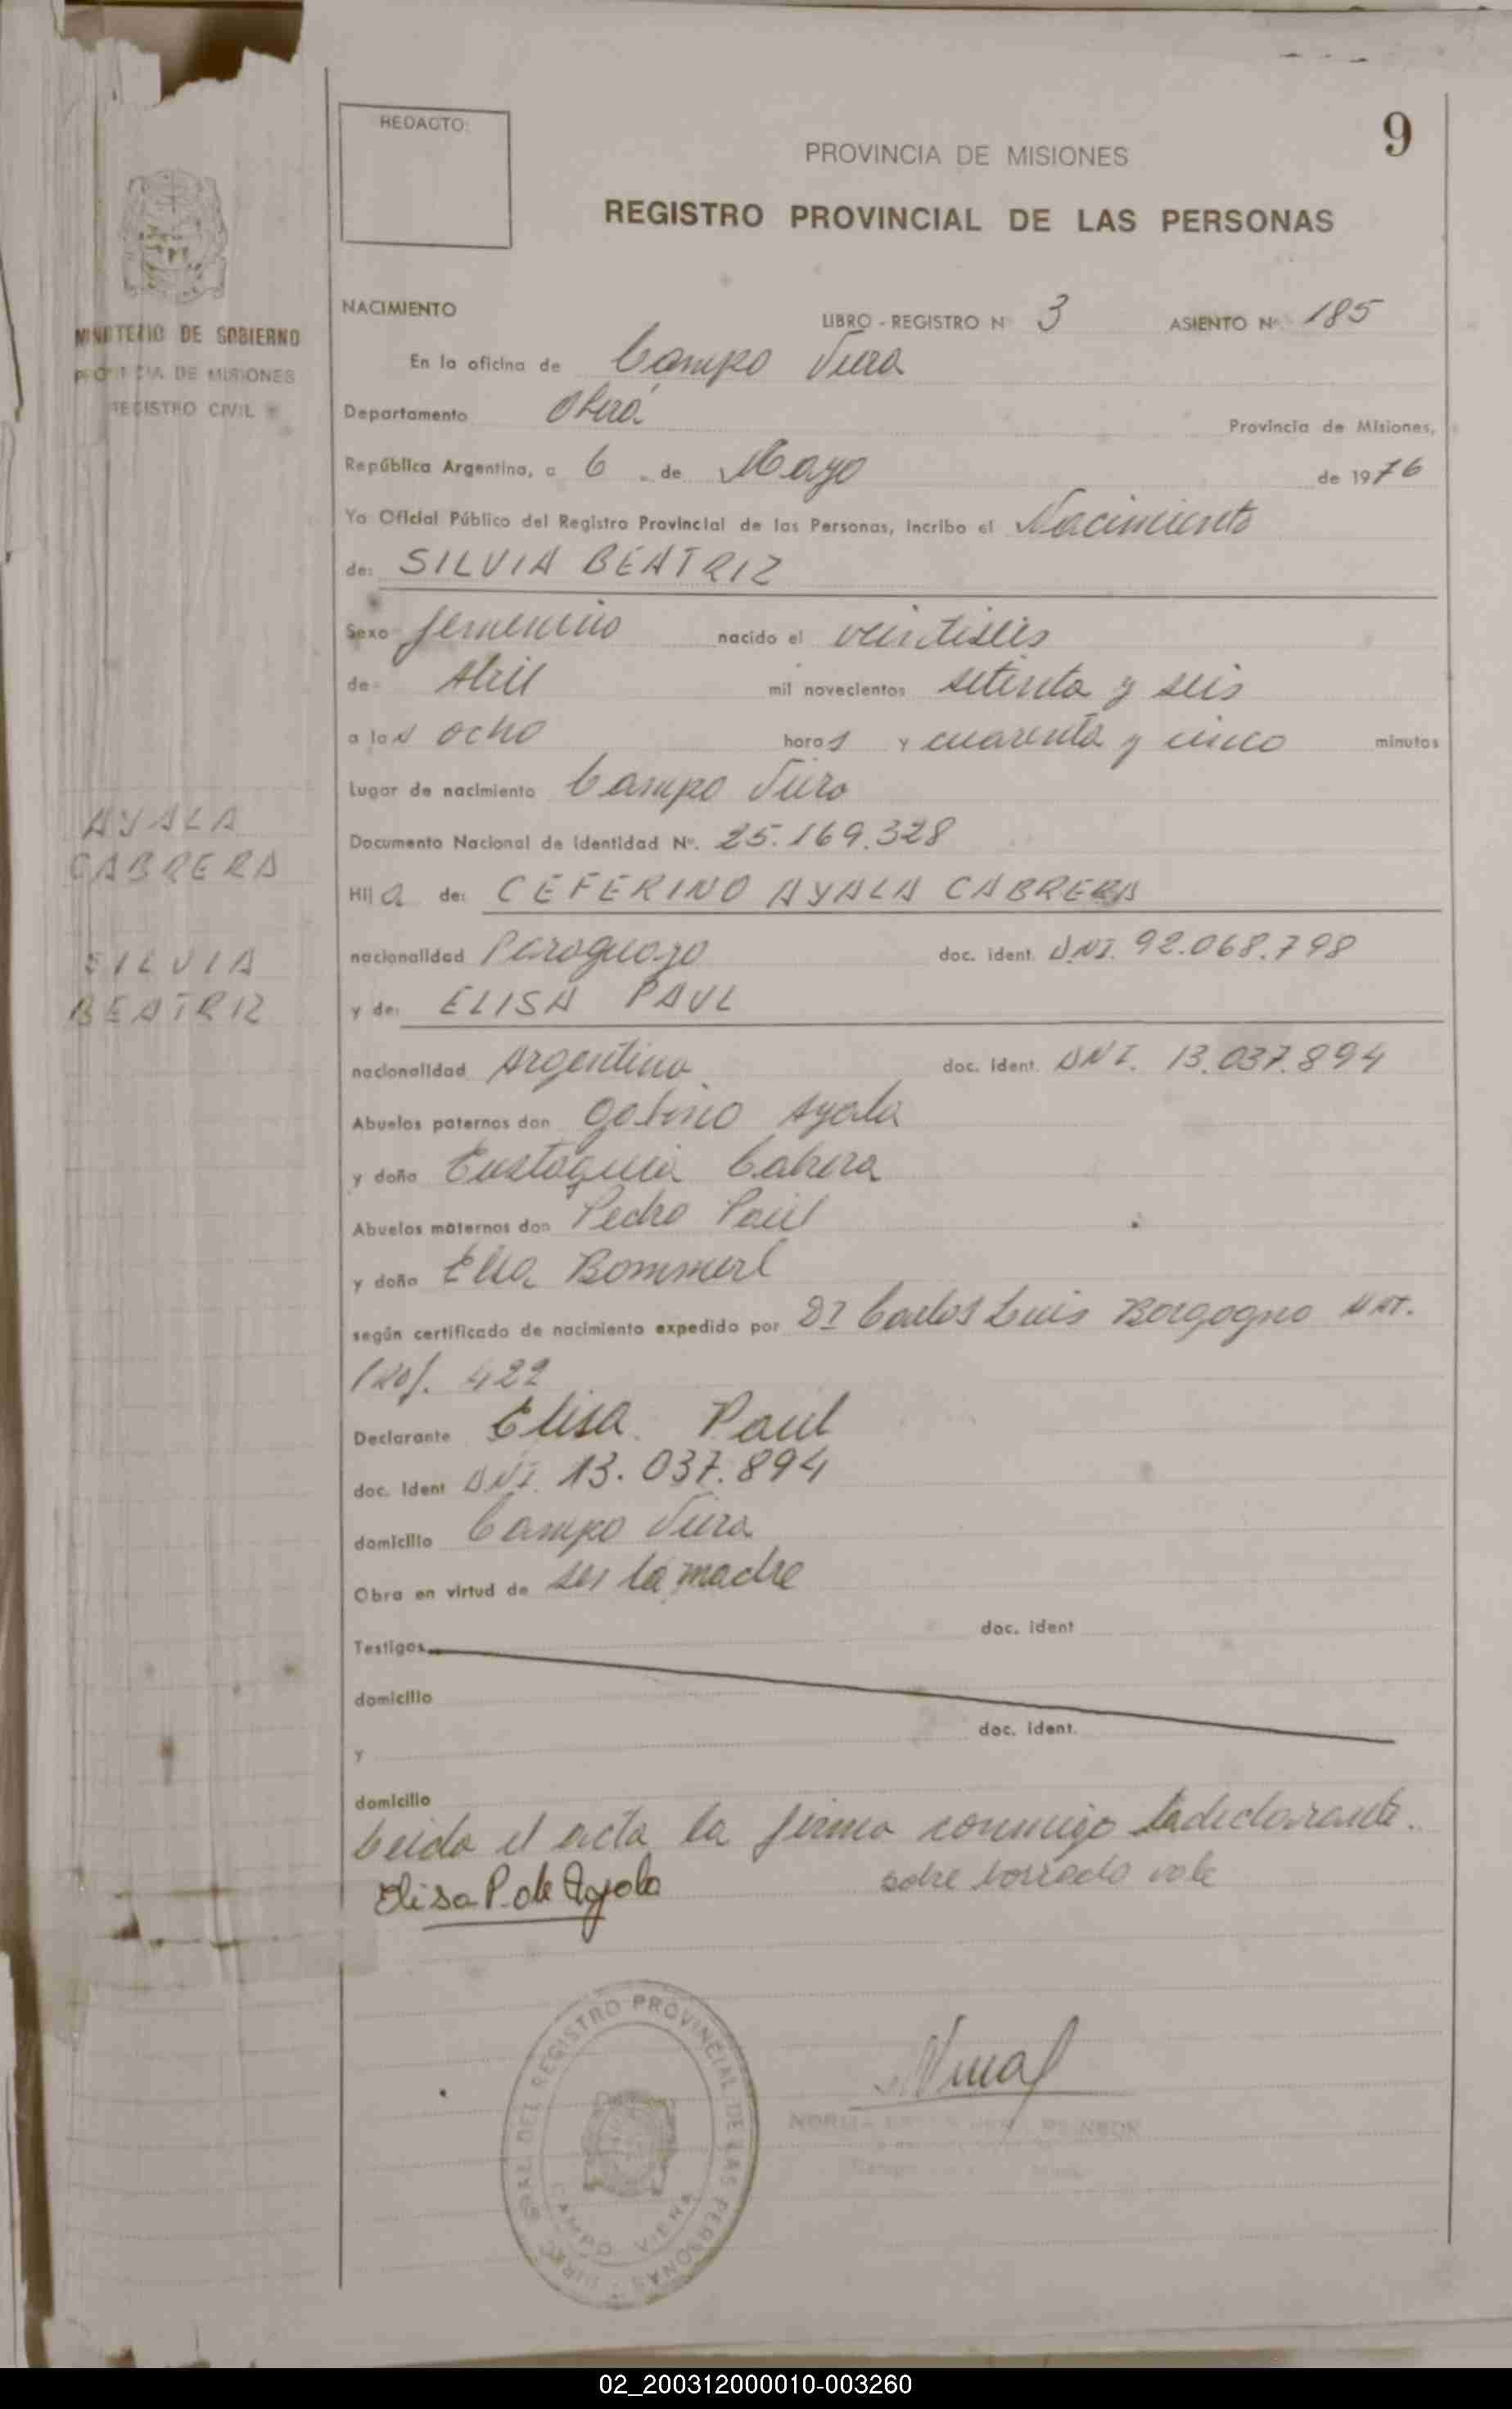 REDACTO:
9
PROVINCIA DE MISIONES
REGISTRO PROVINCIAL DE LAS PERSONAS
MINISTERIO DE GOBIERNO
PROVINCIA DE MISIONES
REGISTRO CIVIL
NACIMIENTO
LIBRO - REGISTRO Nº 3 ASIENTO Nº 185
En la oficina de Campo Viera
Departamento Oberá Provincia de Misiones,
República Argentina, a 6 de Mayo de 1976
Yo Oficial Público del Registro Provincial de las Personas, incribo el Nacimiento
de: SILVIA BEATRIZ
Sexo femenino nacido el veintiseis
de Abril mil novecientos setenta y seis
a las ocho horas y cuarenta y cinco minutos
Lugar de nacimiento Campo Viera
Documento Nacional de Identidad Nº. 25.169.328
AYALA
CABRERA
SILVIA
BEATRIZ
Hija de: CEFERINO AYALA CABRERA
nacionalidad Paraguayo doc. ident. DNI. 92.068.798
y de: ELISA PAUL
nacionalidad Argentina doc. ident. DNI. 13.037.894
Abuelos paternos don Gabino Ayala
y doña Eustaquia Cabrera
Abuelos maternos don Pedro Paul
y doña Elsa Bommerl
según certificado de nacimiento expedido por Dr Carlos Luis Borgogno MAT.
Prof. 422
Declarante Elisa Paul
doc. Ident DNI. 13.037.894
domicilio Campo Viera
Obra en virtud de ser la madre
Testigos doc. ident
domicilio
y doc. ident.
domicilio
Leida el acta la firma conmigo la declarante.
Elisa P. de Ayala sobre borrado vale
DIREC. GRAL DEL REGISTRO PROVINCIAL DE LAS PERSONAS
CAMPO VIERA
NORMA
02_200312000010-003260